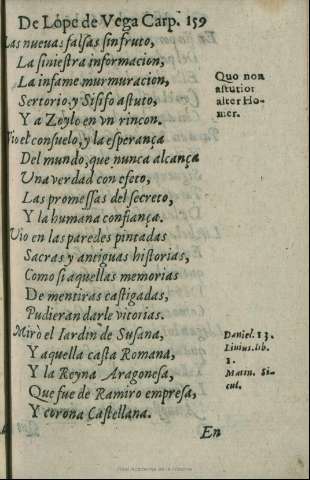 De Lope de Vega Carp. 159
Las nueuas falsas sin fruto,
La siniestra informacion,
La infame murmuracion,
Sertorio, y Sisifo astuto,
Y a Zoylo en vn rincon.
Vio el consuelo, y la esperança
Del mundo, que nunca alcança
Una verdad con efeto,
Las promessas del secreto,
Y la humana confiança.
Vio en las paredes pintadas
Sacras y antiguas historias,
Como si aquellas memorias
De mentiras castigadas,
Pudieran darle vitorias.
Mirò el Iardin de Susana,
Y aquella casta Romana,
Y la Reyna Aragonesa,
Que fue de Ramiro empresa,
Y corona Castellana.
En
Quo non
astutior
alter Ho-
mer.
Daniel. 13.
Liuius. lib.
1.
Marin. Si-
cul.
Real Academia de la Historia